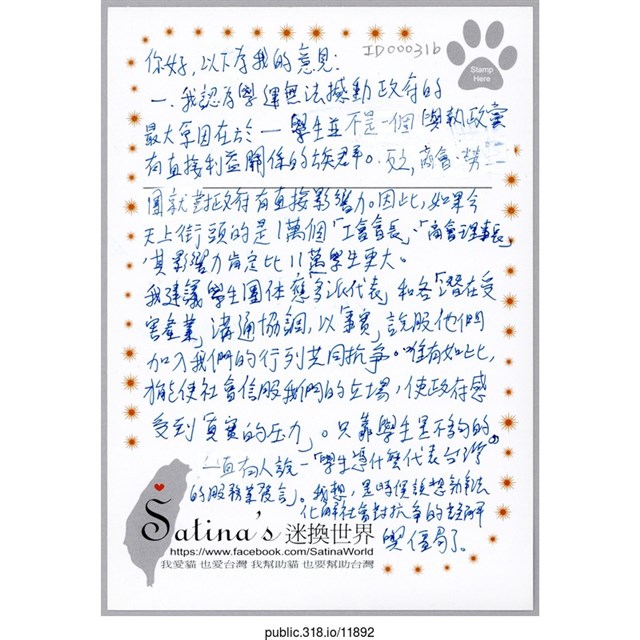 ID000316
Stamp
Here
你好，以下為我的意見：
一、我認為學運無法撼動政府的
最大原因在於—學生並不是一個與執政黨
有直接利益關係的族群。反之，商會、勞工
團就對政府有直接影響力。因此，如果今
天上街頭的是1萬個「工會會長」、「商會理事長」
，其影響力肯定比11萬學生更大。
我建議學生團体應多派代表，和各「潛在受
害產業」溝通協調，以「事實」說服他們
加入我們的行列共同抗爭。唯有如此，
才能使社會信服我們的立場，使政府感
受到「真實的压力」。只靠學生是不夠的。
一直有人說—「學生憑什麼代表台灣
的服務業發言」。我想，是時候該想辦法
化解社會對抗爭的誤解
與僵局了。
Satina's 迷換世界
https://www.facebook.com/SatinaWorld
我愛貓 也愛台灣 我幫助貓 也要幫助台灣
public.318.io/11892